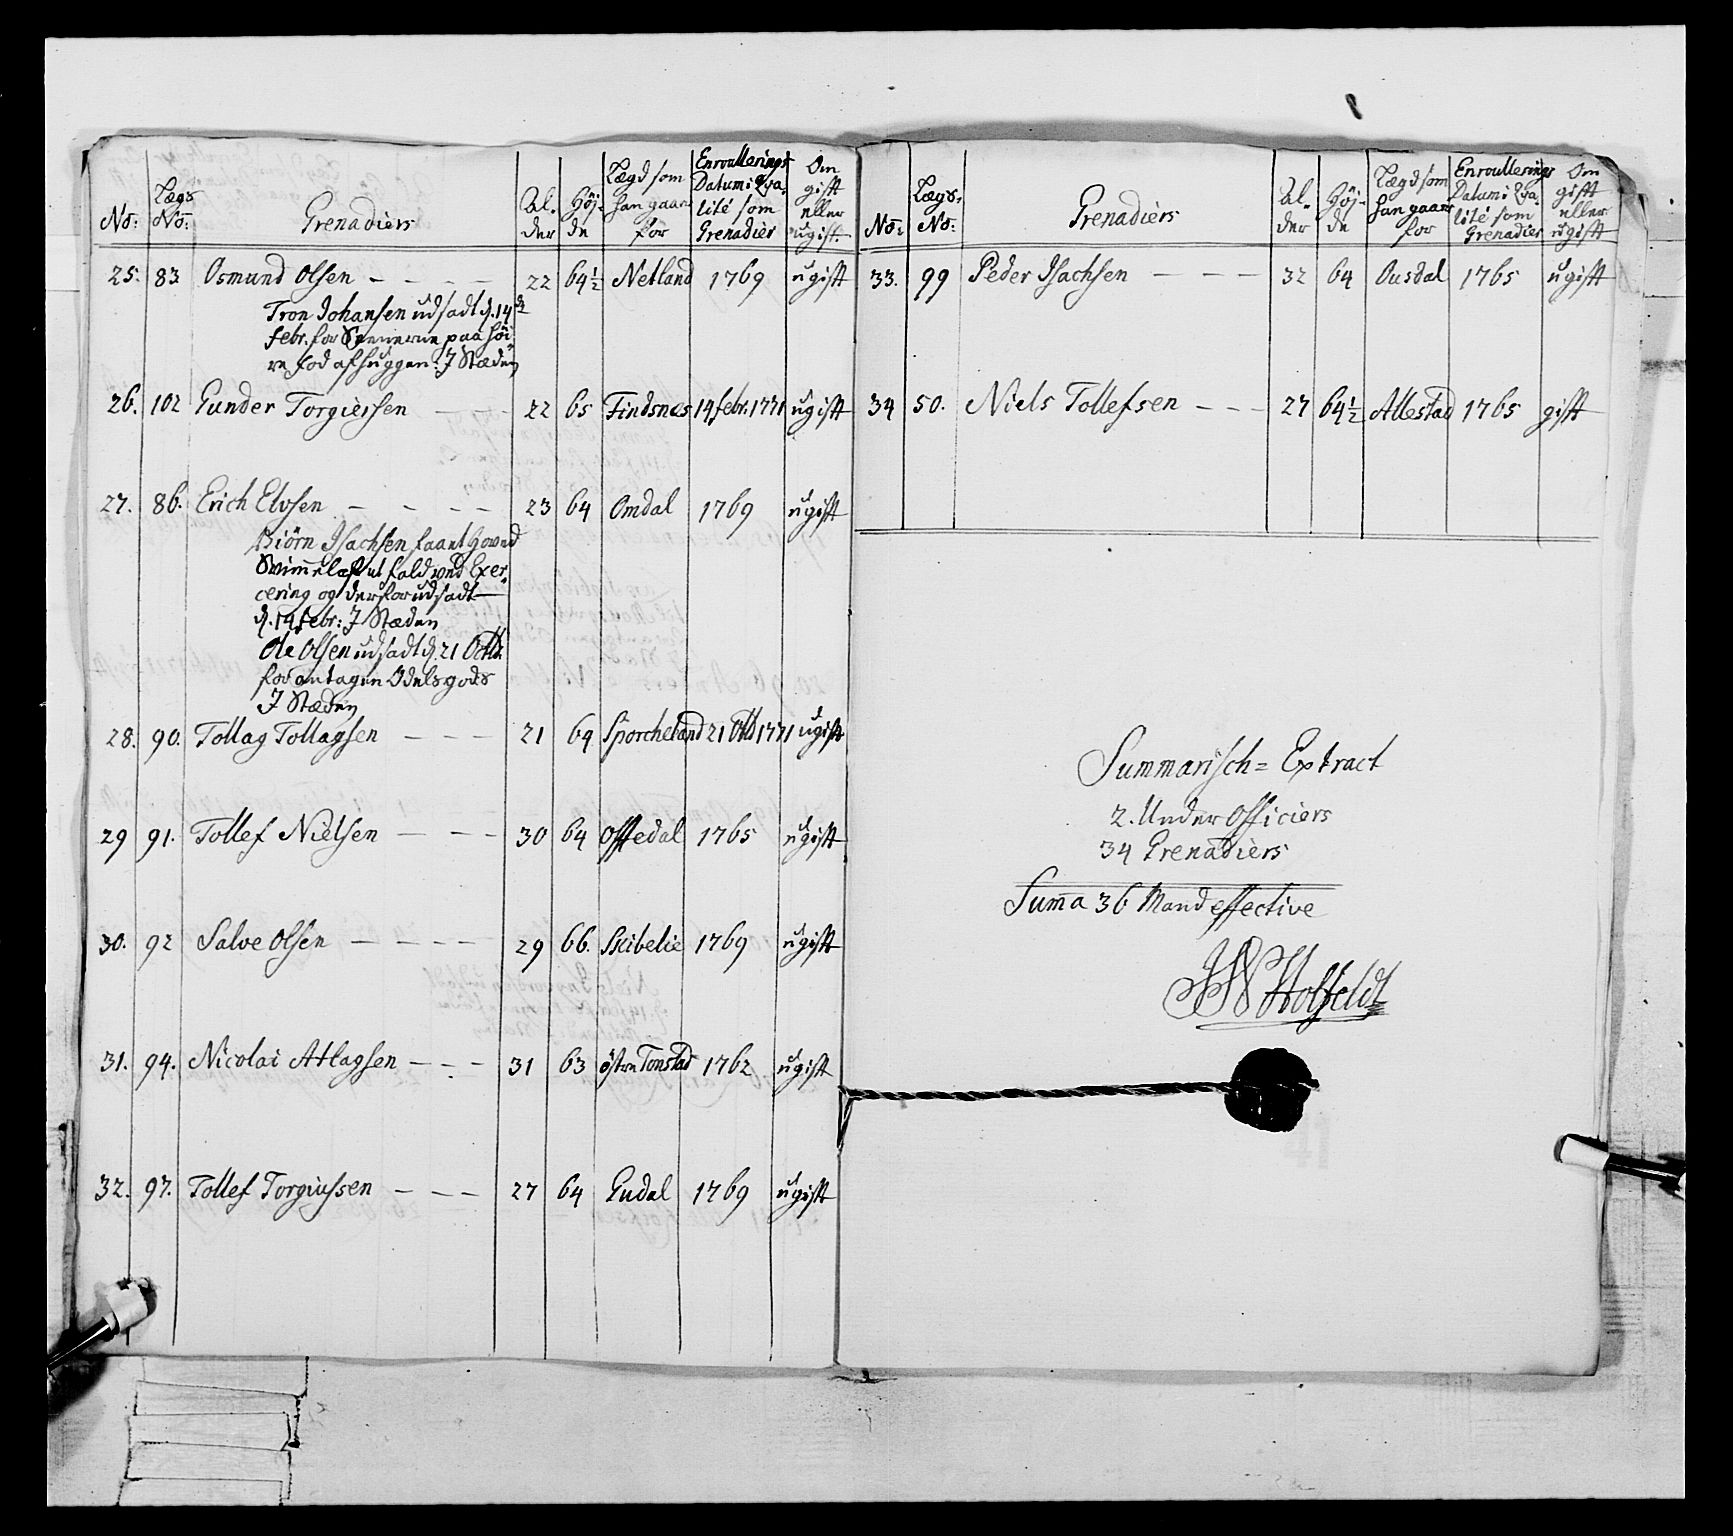 No: Lægs No: Grenadiers Al- der Höj- de Lægd som han gaar for Enroullerings Datum i Qva- lité som Grenadier Om gift eller ugift
25: 83 Osmund Olsen - - - - 22 64½ Netland 1769 ugift
Tron Johansen udsadt d. 14de
febr. for Seenerne paa höi-
re fod afhuggen: I Stæden
26. 102 Gunder Torgiersen - - 22 65 Findsnæs 14 febr: 1771 ugift
27. 86. Erich Elvsen - - - - 23 64 Omdal 1769 ugift
Biörn Isachsen faaet hoved
Svimmelse et fald ved Exer-
cering og derfor udsadt
d. 14 febr: I Stæden
Ole Olsen udsadt d. 21 Octb:
for antagen Odelsgods
I Stæden
28. 90. Tollag Tollagsen - - - 21 64 Sporcheland 21 Octb 1771 ugift
29 91. Tollef Nielsen - - - 30 64 Offedal 1765 ugift
30. 92 Salve Olsen - - - - 29 66. Skibelie 1769 ugift
31. 94. Nicolai Atlagsen - - - 31 63 östre Tonstad 1762 ugift
32. 97. Tollef Torgiussen - - - 27 64 Gudal 1769 ugift
No: Lægs. No: Grenadiers Al- der Höj- de Lægd som han gaar for Enroullerings Datum i Qva- lité som Grenadier Om gift eller ugift
33. 99 Peder Isachsen - - - 32 64 Ousdal 1765 ugift
34 50. Niels Tollefsen - - - 27 64½ Allestad 1765 gift
Summarisch= Extract
2. Under Officiers
34 Grenadiers
Suma 36 Mand effective
Holfeldt